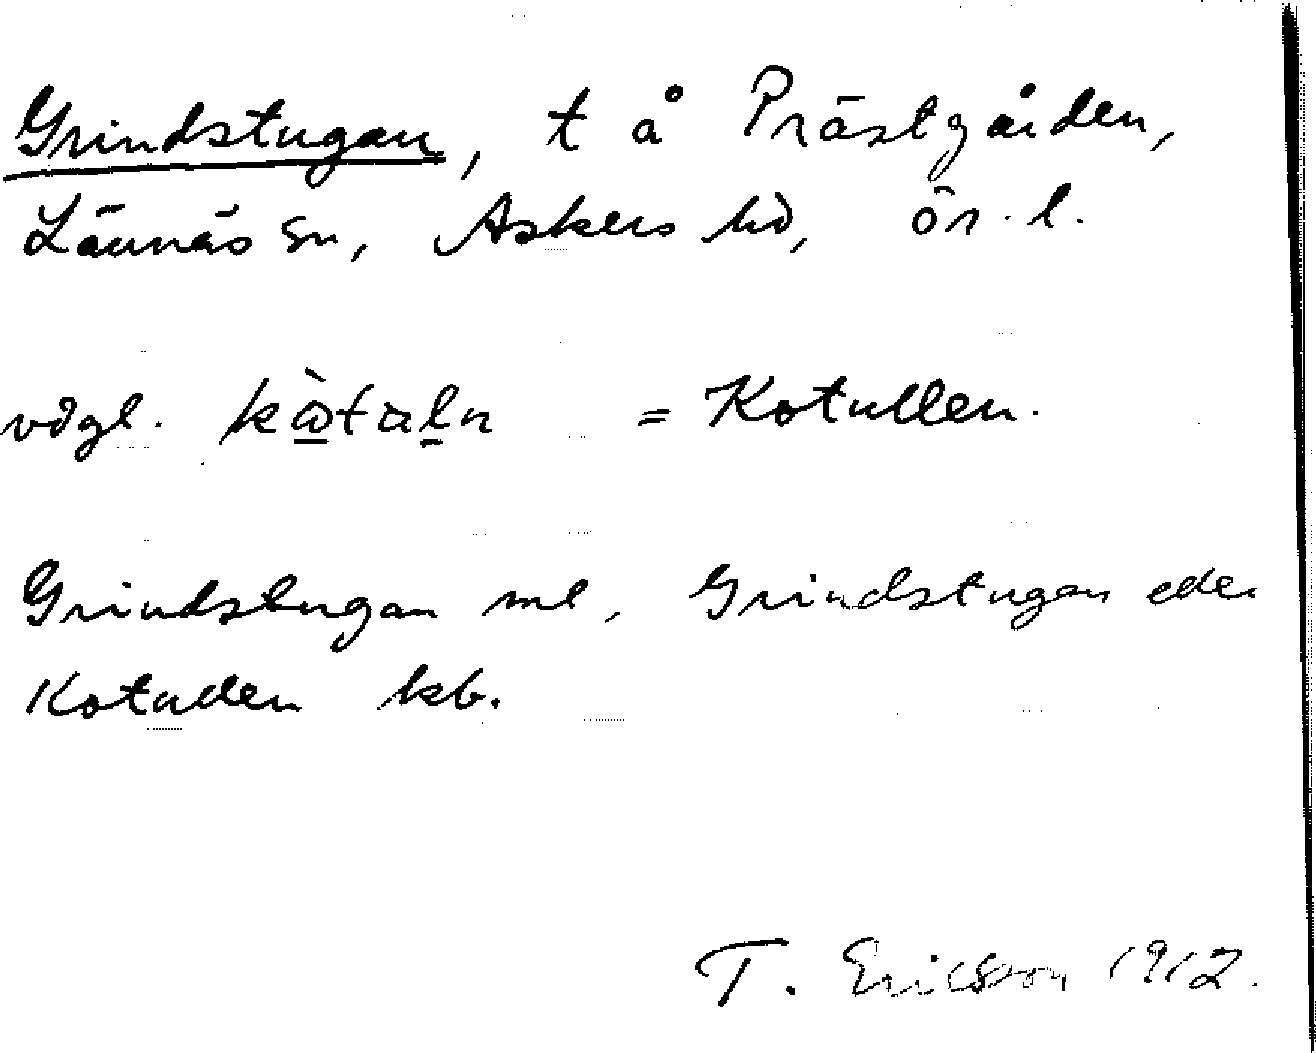 Grindstugan, t å Prästgården,
Lännäs sn, Askers hd, ör. l.
vdgl. kὼtaln = Kotullen.
Grindstugan ml, Grindstugan eller
Kotullen kb.
T. Ericsson 1912.